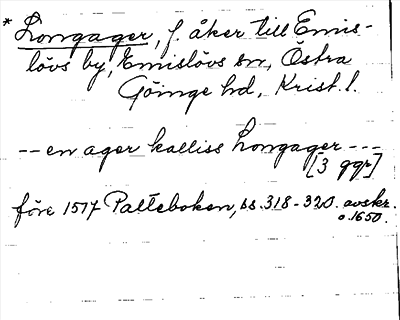 * Longager, f. åker till Emis-
lövs by, Emislövs sn, Östra
Göinge hd, Krist. l.
-- en ager kalliss Longager ---
[3 ggr]
före 1517 Palteboken, ss. 318-320. avskr.
o. 1650.